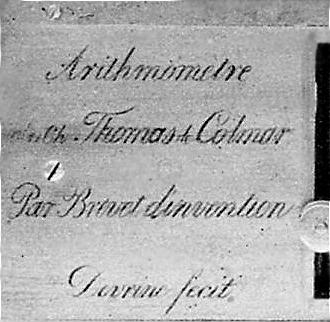 Arithmomètre
de Ch. Thomas de Colmar
Par Brevet d'invention
Devrine fecit.